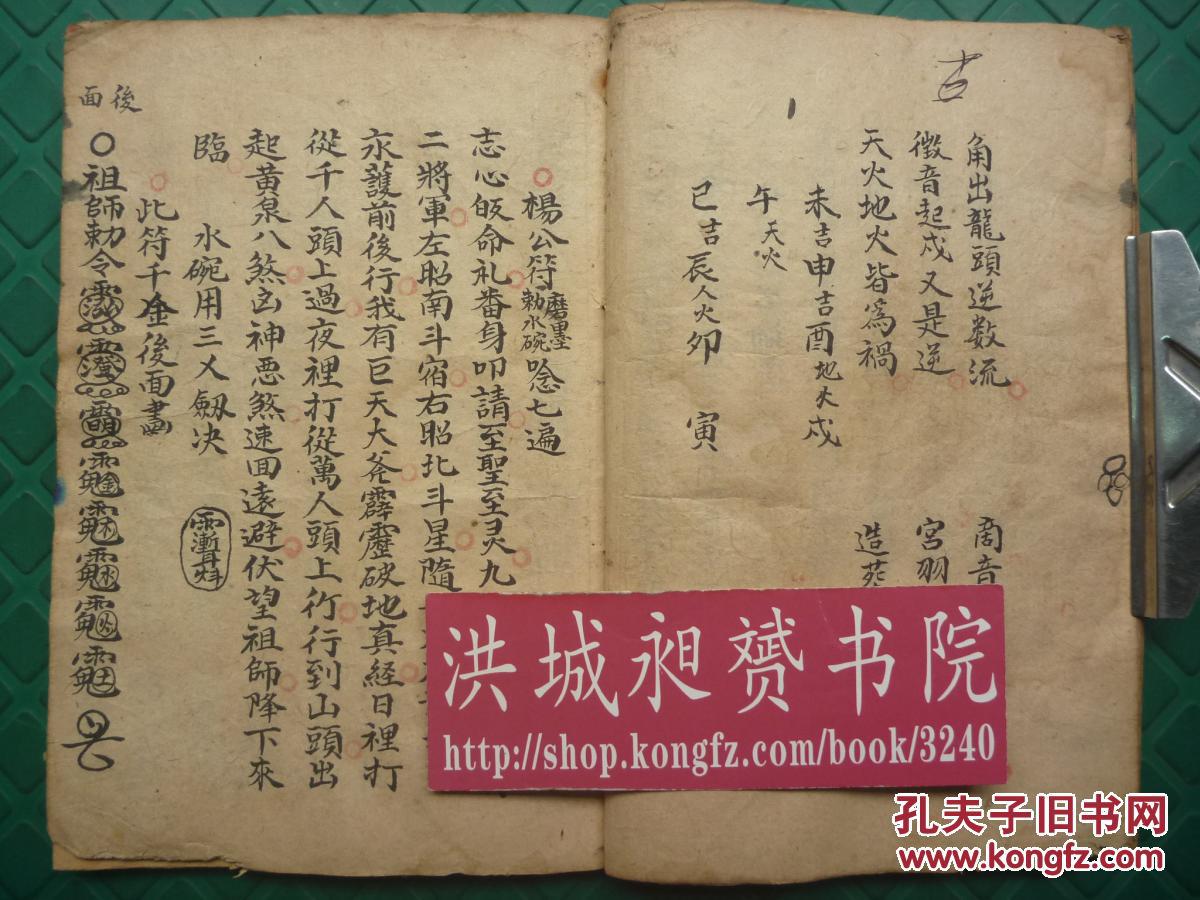 吉
角出龍頭逆数流
商音
徵音起戌又是逆
宮羽
天火地火皆為禍
造葬
未吉申吉酉地火戌
午天火
巳吉辰人火卯 寅
楊公符磨墨勅水碗唸七遍
志心皈命礼番身叩請至聖至灵九
二將軍左昭南斗宿右昭北斗星隨
永護前後行我有巨天大斧霹靂破地真経日裡打
從千人頭上過夜裡打從萬人頭上行行到山頭出
起黃泉八煞凶神悪煞速回遠避伏望祖師降下來
臨 水碗用三乂劔决
此符千金後面畫
後面
祖師勅令
洪城昶赟书院
http://shop.kongfz.com/book/3240
孔夫子旧书网
www.kongfz.com